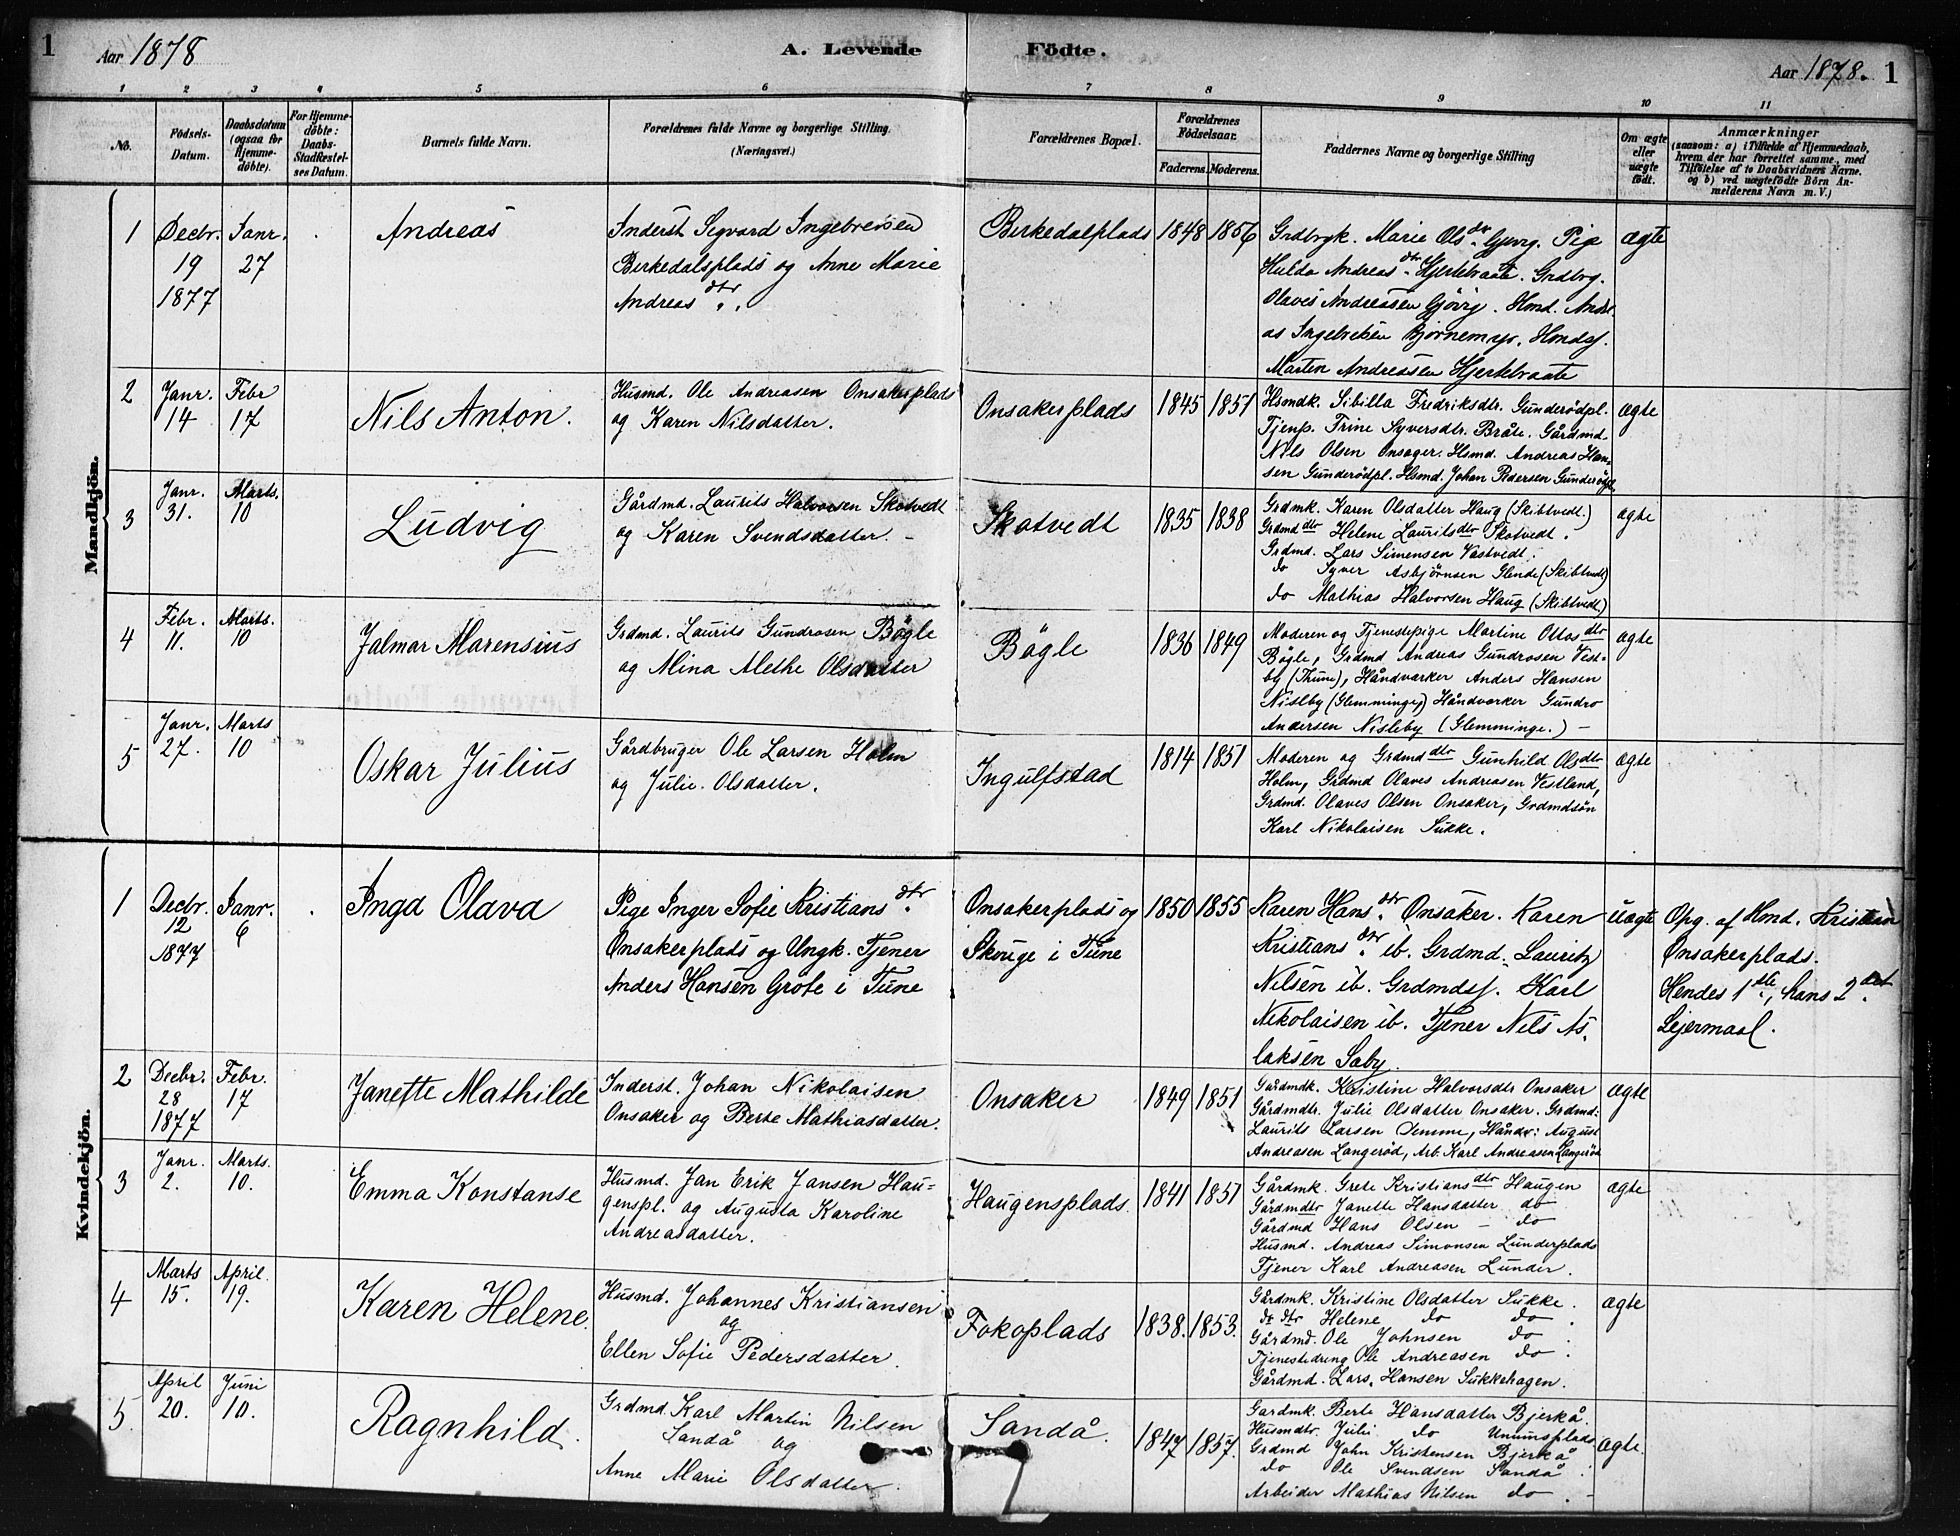 1
Aar 1878
A. Levende
Födte.
Aar 1878.
1
1 2 3 4 5 6 7 8 9 10 11
No.
Födsels-
Datum.
Daabsdatum
(ogsaa for
Hjemme-
döbte).
For Hjemme-
döbte:
Daabs-
Stadfæstel-
ses Datum.
Barnets fulde Navn.
Forældrenes fulde Navne og borgerlige Stilling.
(Næringsvei.)
Forældrenes Bopæl.
Forældrenes
Födselsaar.
Faderens. Moderens.
Faddernes Navne og borgerlige Stilling
Om ægte
eller
uægte
födt.
Anmærkninger
(saasom: a) i Tilfælde af Hjemmedaab,
hvem der har forrettet samme, med
Tilföielse af to Daabsvidners Navne.
og b) ved uægtefödte Börn An-
melderens Navn m. V.)
Mandkjön.
1
Decbr.
19
1877
Janr.
27
Andreas
Inderst Sigvard Ingebretsen
Birkedalsplads og Anne Marie
Andreas dtr.
Birkedalplads
1848
1856
Grdbrgk. Marie Ols dtr. Gjerg. Pige
Hulda Andreas dtr. Hjertebraate. Grdbrg.
Olaves Andreassen Gjörg. Hmd. Andre-
as Ingebretsen Bjørnemyr. Hmdsf.
Morten Andreassen Hjertebraate
ægte
2
Janr.
14
Febr
17
Nils Anton.
Husmd. Ole Andreasen Onsakerplads
og Karen Nilsdatter.
Onsakerplads
1845
1851
Hsmdk. Sibilla Fredriksdtr. Gunderödpl.
Tjenp. Trine Syversdtr. Bråte. Gårdmd.
Nils Olsen Onsager. Hsmd. Andreas Han-
sen Gunderödpl. Hsmd. Johan Pedersen Gunderödpl.
ægte
3
Janr.
31.
Marts.
10
Ludvig
Gårdmd. Laurits Halvorsen Skotvedt
og Karen Svendsdatter. -
Skotvedt
1835
1838
Grdmk. Karen Olsdatter Haug (Skibtvedt.)
Grdmd dtr Helene Laurits dtr Skotvedt.
Grdmd. Lars Simensen Vestvedt.
do Syver Asbjørnsen Glende (Skibtvedt)
do Mathias Halvorsen Haug (Skibtvedt.)
ægte
4
Febr.
11.
Marts.
10
Jalmar Marensius
Grdmd. Laurits Gundrosen Bögle
og Mina Methe Olsdatter
Bögle
1836
1849
Moderen og Tjenestepige Martine Ottos dtr
Bögle, Grdmd Andreas Gundrosen Vest-
by (Thune), Håndværker Anders Hansen
Nislby (Glemminge,) Håndværker Gundro
Andersen Nisleby (Glemminge.) -
ægte
5
Janr.
27.
Marts
10
Oskar Julius
Gårdbruger Ole Larsen Holm
og Julie Olsdatter.
Ingulfstad
1814
1851
Moderen og Grdmd dtr Gunhild Olsdtr
Holm, Grdmd Olaves Andreasen Vestland,
Grdmd. Olaves Olsen Onsaker, Grdmdsön
Karl Nikolaisen Sukke.
ægte
Kvindekjön.
1
Decbr.
12
1877
Janr.
6
Inga Olava
Pige Inger Sofie Kristians dtr.
Onsakerplads og Ungk. Tjener
Anders Hansen Gröte i Tune
Onsakerplads og
Skouge i Tune
1850
1855
Karen Hans dtr. Onsaker. Karen
Kristians dtr. ib. Grdmd. Lauritz
Nilsen ib. Grdmdsf. Karl
Nikolaisen ib. Tjener Nils As-
laksen Saby.
uægte
Opg. af Hmd. Kristian
Onsakerplads.
Hendes 1ste, hans 2det
Lejermaal.
2
Decbr.
28
1877
Febr.
17
Janette Mathilde
Inderst. Johan Nikolaisen
Onsaker og Berte Mathiasdatter.
Onsaker
1849
1851
Gardmdk. Kristine Halvorsdtr Onsaker
Gårdmdtr. Julie Olsdatter Onsaker. Grdmd:
Laurits Larsen Jemme, Håndv: August
Andreasen Langeröd, Arb. Karl Andreasen Langeröd
ægte
3
Janr.
2.
Marts.
10.
Emma Konstanse
Husmd. Jan Erik Jansen Hau-
genspl. og Augusta Karoline
Andreasdatter.
Haugensplads.
1841
1851
Gårdmk. Grete Kristians dtr Haugen
Gårdmdtr Janette Hansdatter do
Gårdmd Hans Olsen - do
Husmd. Andreas Simonsen Lunderplads
Tjener Karl Andreasen Lunder.
ægte
4
Marts
15.
April.
19.
Karen Helene.
Husmd. Johannes Kristiansen
og
Ellen Sofie Pedersdatter.
Fokoplads
1838.
1853.
Gårdmk. Kristine Olsdatter Sukke.
do dtr Helene do do.
Gårdmd. Ole Johnsen do.
Tjenestedreng Ole Andreasen do.
Gårdmd. Lars. Hansen Sukkehagen.
ægte
5
April
20.
Juni
10.
Ragnhild.
Grdmd. Karl Martin Nilsen
Sandå og
Anne Marie Olsdatter.
Sandå.
1847
1857.
Gardmk. Berte Hansdatter Bjerkå.
Husmdtr. Julie do Unumsplads
Grdmd John Kristensen Bjerkå
do Ole Svendsen Sandå.
Arbeider Mathias Nilsen do. -
ægte.